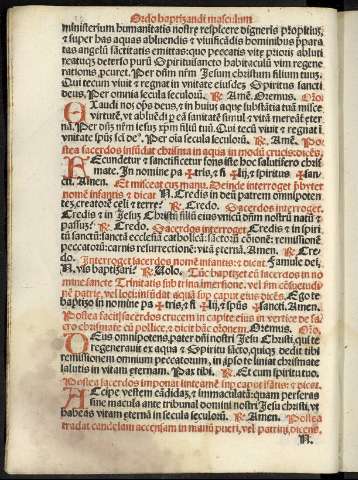 Ordo baptizandi masculum
ministerium humanitatis nostre respicere digneris propitius,
& super has aquas abluendis & viuificādis hominibus ppara-
tas angelū sāctitatis emittas: quo peccatis vite prioris abluti
reatuqꝫ deterso purū Spirituisancto habitaculū vim regene-
rationis pcuret. Per dn̄m nr̄m Jesum christum filium tuuꝫ.
Qui tecum viuit & regnat in vnitate eiusdeꝫ Spiritus sancti
deus, Per omnia secula seculoꝝ. ℞. Amē. Oremus. Or̄o.
EXaudi nos op̄s deus, & in huiꝰ aque substātia tuā mitte
virtutē, vt abluēdꝰ p eā sanitatē simul & vitā mereat̄ eter-
nā. Per dn̄m nr̄m iesuꝫ xpm̄ filiū tuū. Qui tecū viuit & regnat ī
vnitate spūs sc̄i deꝰ. Per oīa secula seculoꝝ. ℞. Amē. Po-
stea sacerdos infūdat chrisma in aqua in modū crucis dicēs.
FEcundetur & sanctificetur fons iste hoc salutifero chris-
mate. In nomine pa ✠ tris, & fi ✠ lij, & spiritus ✠ san-
cti. Amen. Et misceat cuꝫ manu. Deinde interroget pbyter
nomē infantis, & dicat N. Credis in deū patrem omnipoten-
teꝫ, creatorē celi & terre? ℞. Credo. Sacerdos interroget,
Credis & in Jesuꝫ Christū filiū eius vnicū dn̄m nostrū natū &
passuꝫ? ℞. Credo. Sacerdos interroget Credis & in spiri-
tū sanctū: sanctā ecclesiā catholicā: sāctoꝝ cōionē: remissionē
peccatoꝝ: carnis resurrectionē: vitā eternā. Amen. ℞. Cre-
do. Interroget sacerdos nomē infantis: & dicat Famule dei,
N. vis baptizari? ℞. Uolo. Tūc baptizet eū sacerdos in no-
mine sancte Trinitatis
pe̅ patrie, vel loci: infūdat aquā sup caput eius dicēs, Ego te
baptizo in nomine pa ✠ tris, & fi ✠ lij, & spūs ✠ sancti. Amen.
Postea facit sacerdos crucem in capite eius in vertice de sa-
cro chrismate cū pollice, & dicit hāc or̄onem. Oremus. Or̄o.
DEus omnipotens, pater dn̄i nostri Jesu Christi, qui te
regenerauit ex aqua & Spiritu sācto, quiqꝫ dedit tibi
remissionem omnium peccatorum, ipse te liniat chrismate
salutis in vitam eternam. Pax tibi. ℞. Et cum spiritu tuo.
Postea sacerdos imponat linteamē sup caput ifātis: & dicat.
ACcipe vestem cādidaꝫ, & immaculatā: quam perferas
sine macula ante tribunal domini nostri Jesu christi, vt
habeas vitam eternā in secula seculoꝝ. ℞. Amen. Postea
tradat candelam accēsam in manū pueri, vel patrini, dicens.
N.